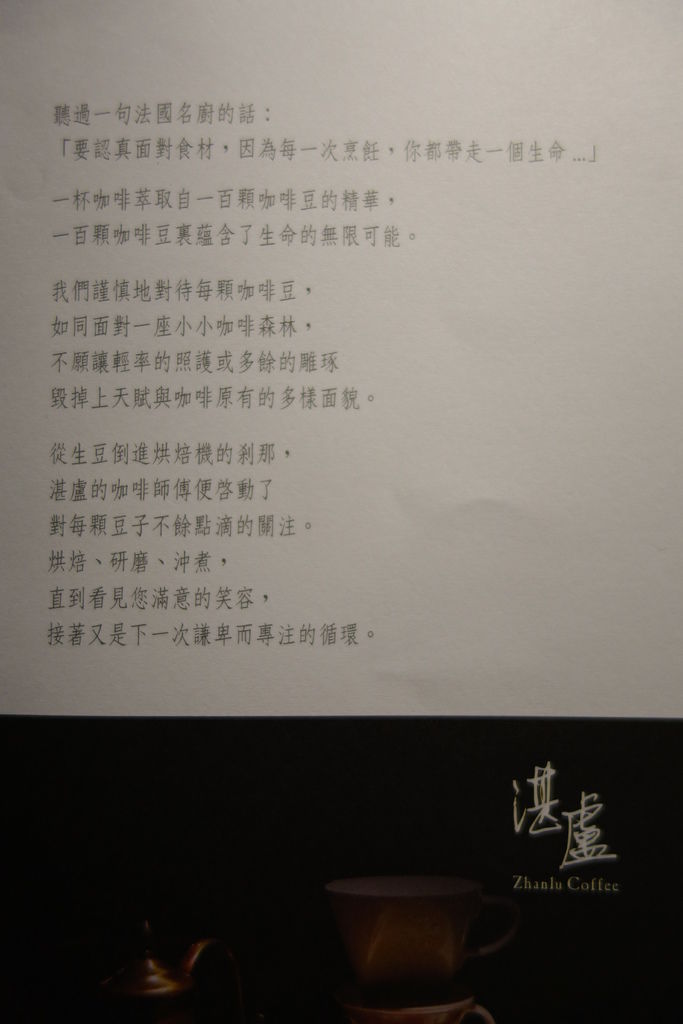 聽過一句法國名廚的話：
「要認真面對食材，因為每一次烹飪，你都帶走一個生命...」
一杯咖啡萃取自一百顆咖啡豆的精華，
一百顆咖啡豆裏蘊含了生命的無限可能。
我們謹慎地對待每顆咖啡豆，
如同面對一座小小咖啡森林，
不願讓輕率的照護或多餘的雕琢
毀掉上天賦與咖啡原有的多樣面貌。
從生豆倒進烘焙機的剎那，
湛盧的咖啡師傅便啓動了
對每顆豆子不餘點滴的關注。
烘焙、研磨、沖煮，
直到看見您滿意的笑容，
接著又是下一次謙卑而專注的循環。
湛盧
Zhanlu Coffee